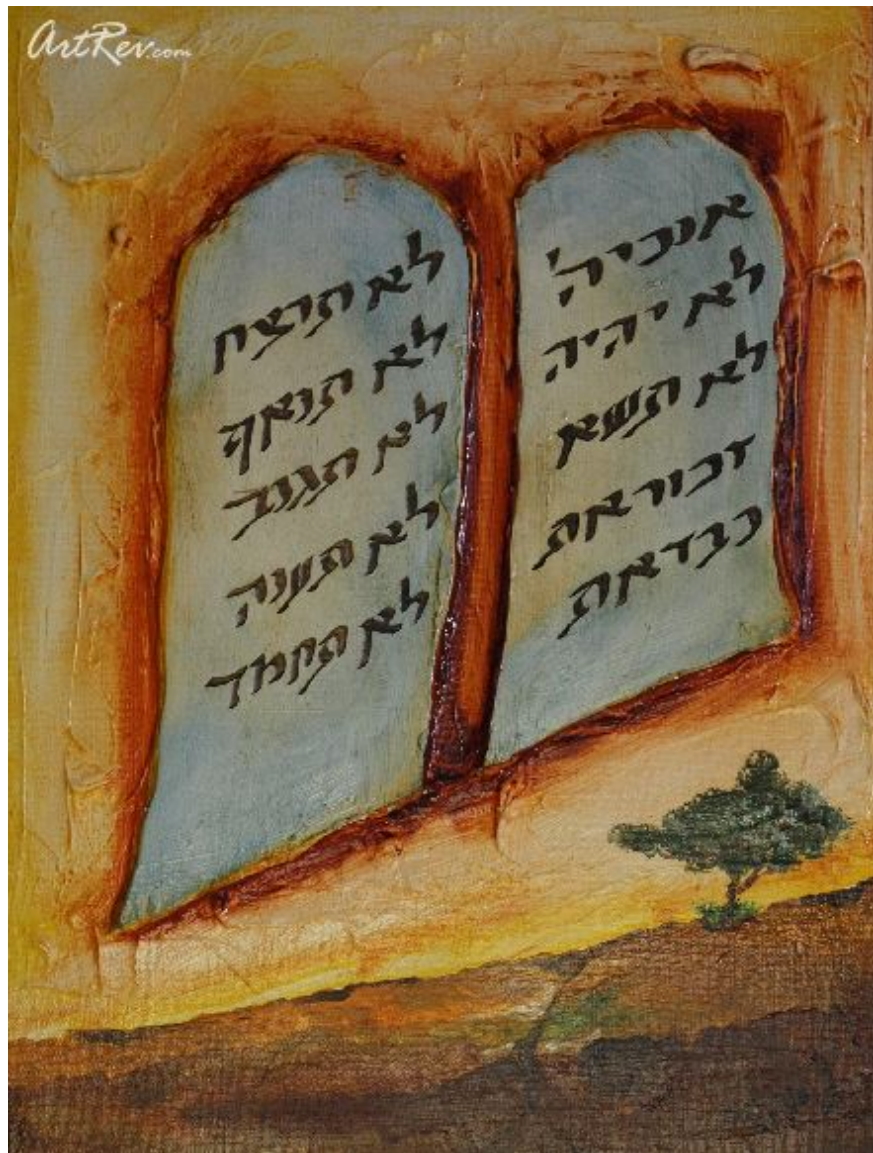 ArtRev.com
אנכי ה'
לא יהיה
לא תשא
זכור את
כבד את
לא תרצח
לא תנאף
לא תגנב
לא תענה
לא תחמד